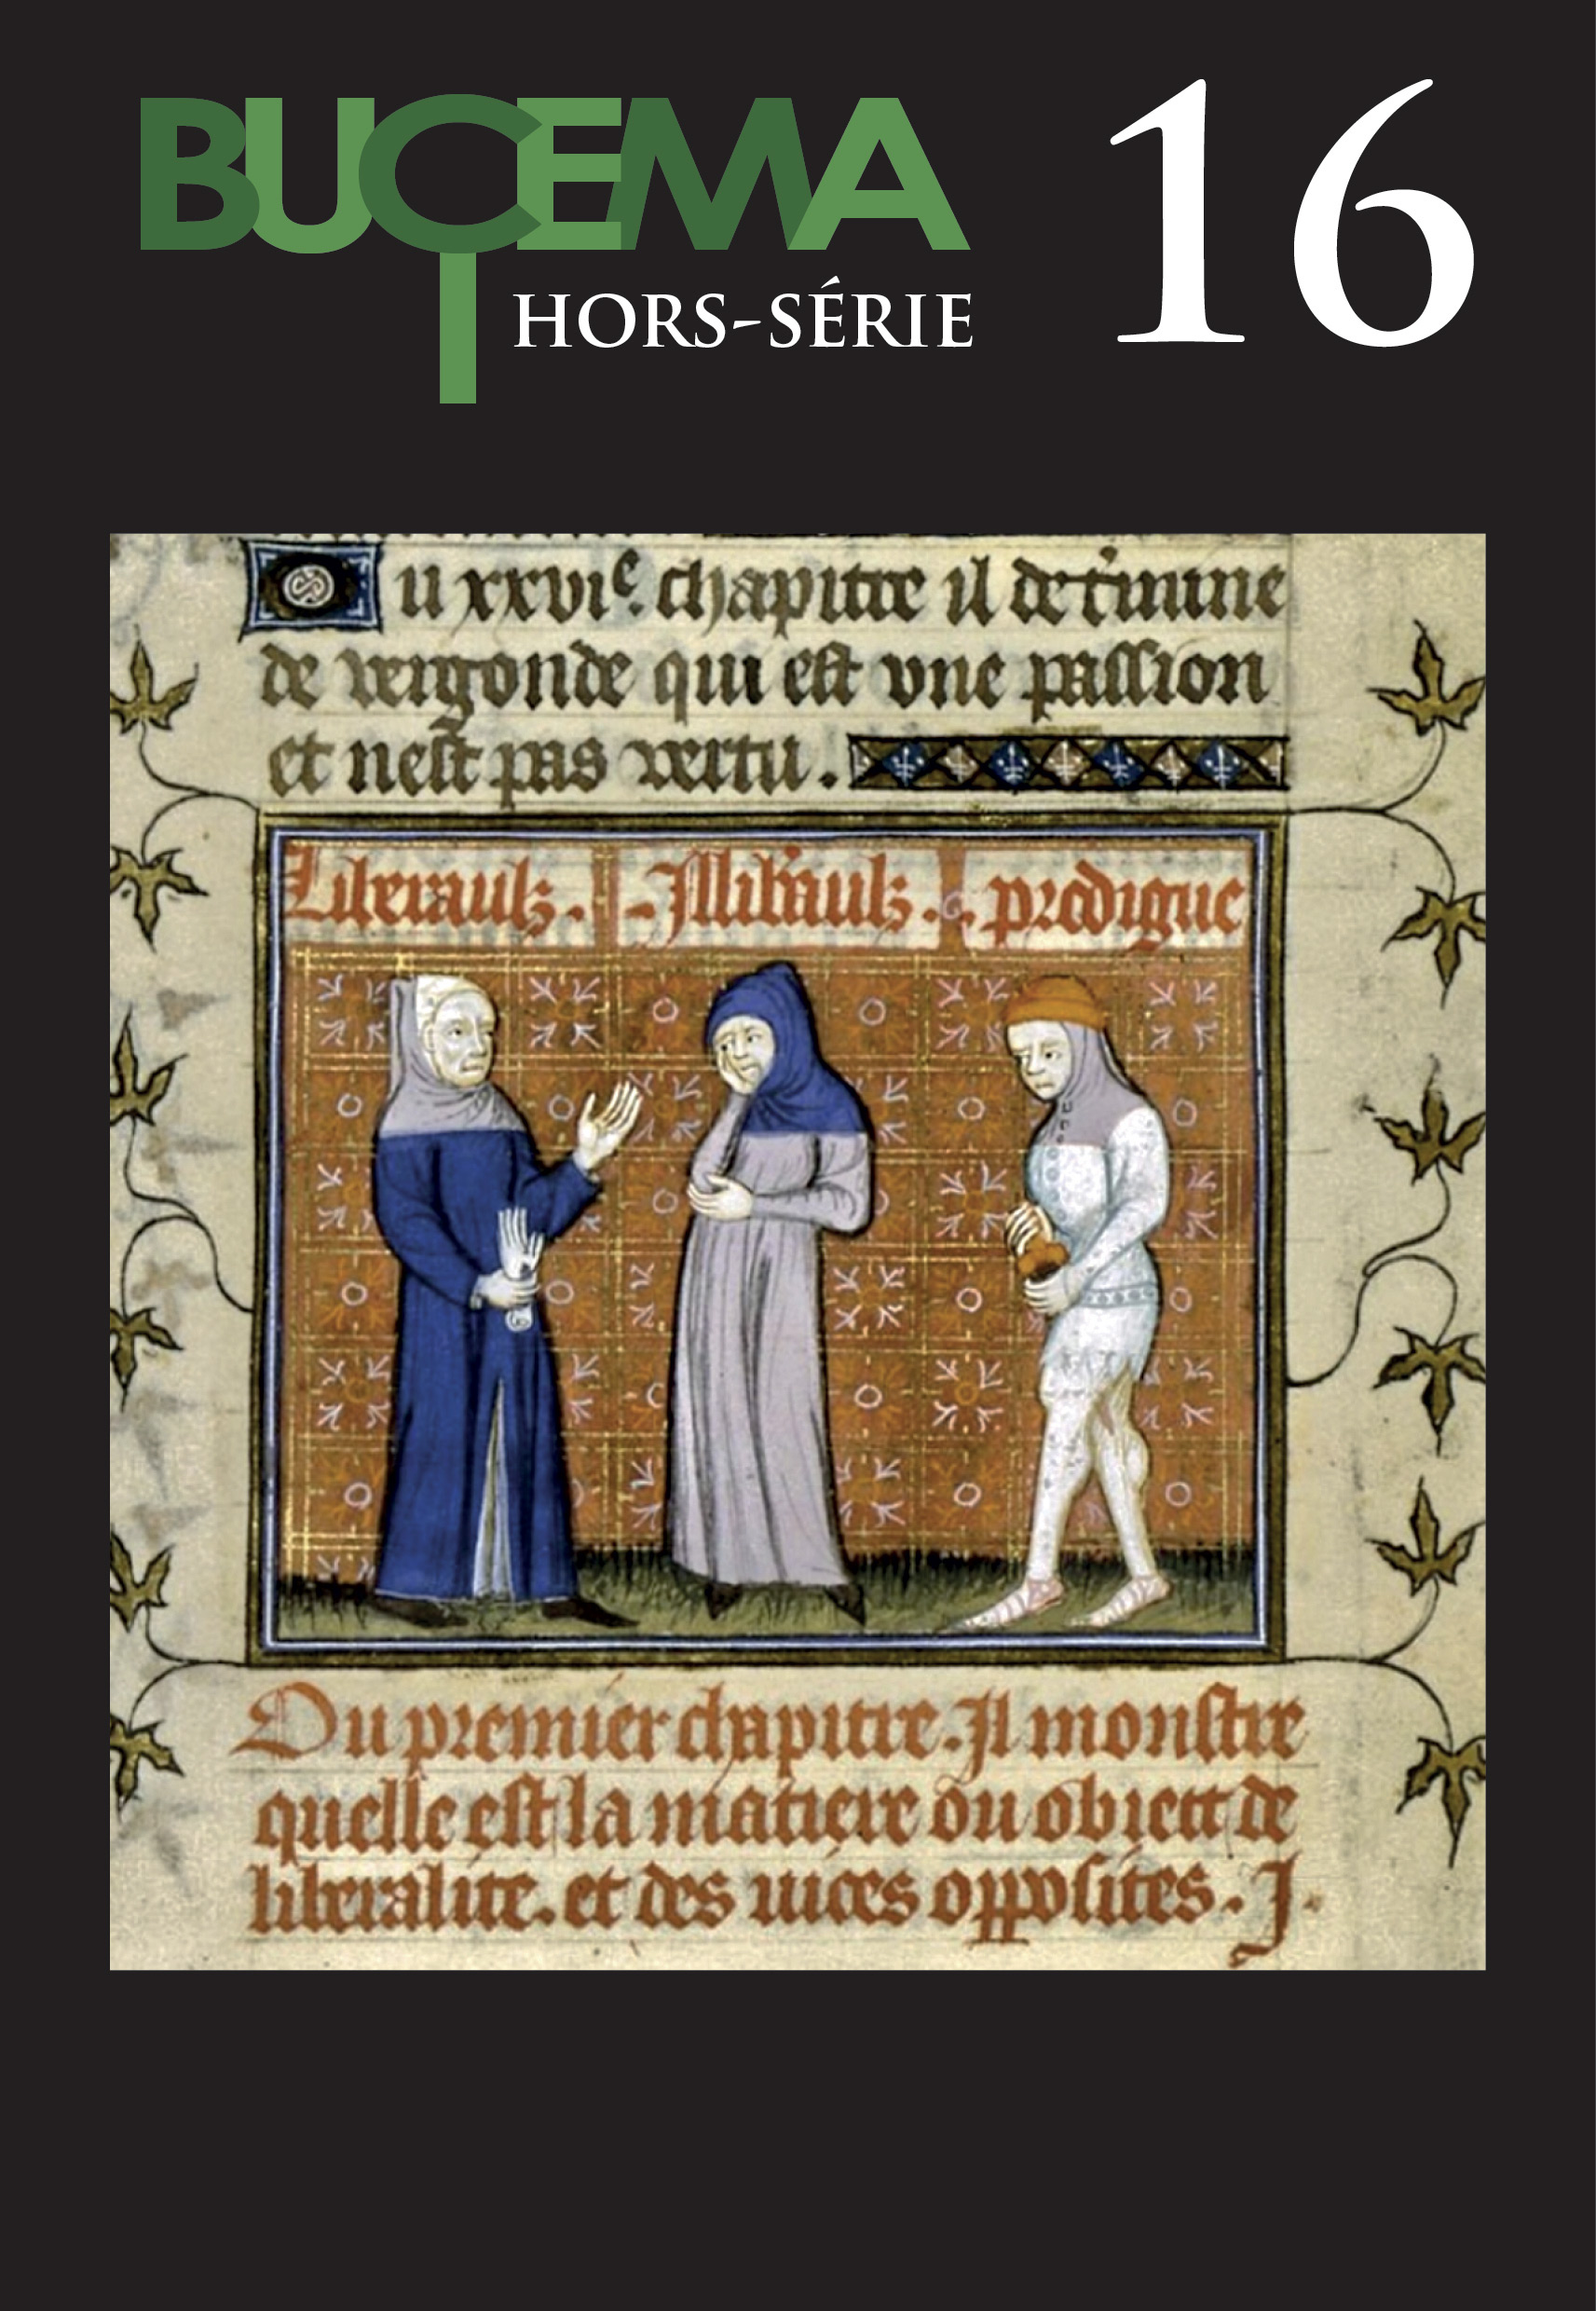 BUCEMA
HORS-SÉRIE
16
u xxvie. chapitre il det'mine
de vergonde qui est vne passion
et nest pas vertu.
Liberaulz. Illib'aulz. prodigue
Ou premier chapitre. Il monstre
quelle est la matiere ou obiect de
liberalite. et des uices opposites. J.